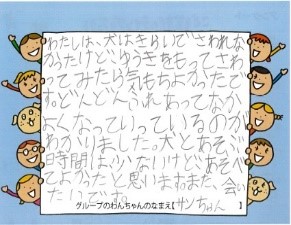 わたしは、犬はきらいでさわれな
かったけど、ゆうきをもってさわ
ってみたら気もちよかったで
す。どんどんふれあってなか
よくなっていっているのが
わかりました。犬とあそぶ
時間は少ないけど、あそべ
てよかったと思いますまた、会い
たいです。
グループのわんちゃんのなまえ【サンちゃん】